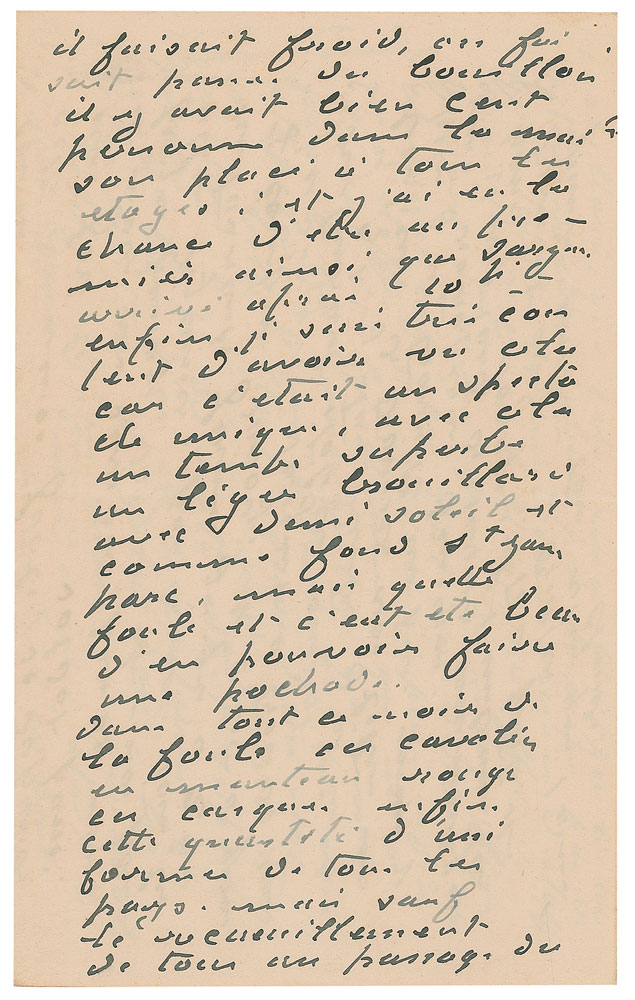 il faisait froid, on fai
sait passer du bouillon
il y avait bien cent
personnes dans la mai
son placé à tous les
étages, et j'ai eu la
chance d'etre au pre-
mier ainsi que Sargent
arrivé après 10 h -
enfin je suis très con
tent d'avoir vu cela
car c'était un specta
cle unique, avec cela
un temps superbe
un léger brouillard
avec demi soleil et
comme fond St Jame
parc, mais quelle
foule et c'eut été beau
d'en pouvoir faire
une pochade.
dans tout ce noir de
la foule ces cavaliers
en manteau rouge
en casques enfin
cette quantité d'uni
formes de tous les
pays. mais sauf
le recueillement
de tous au passage du